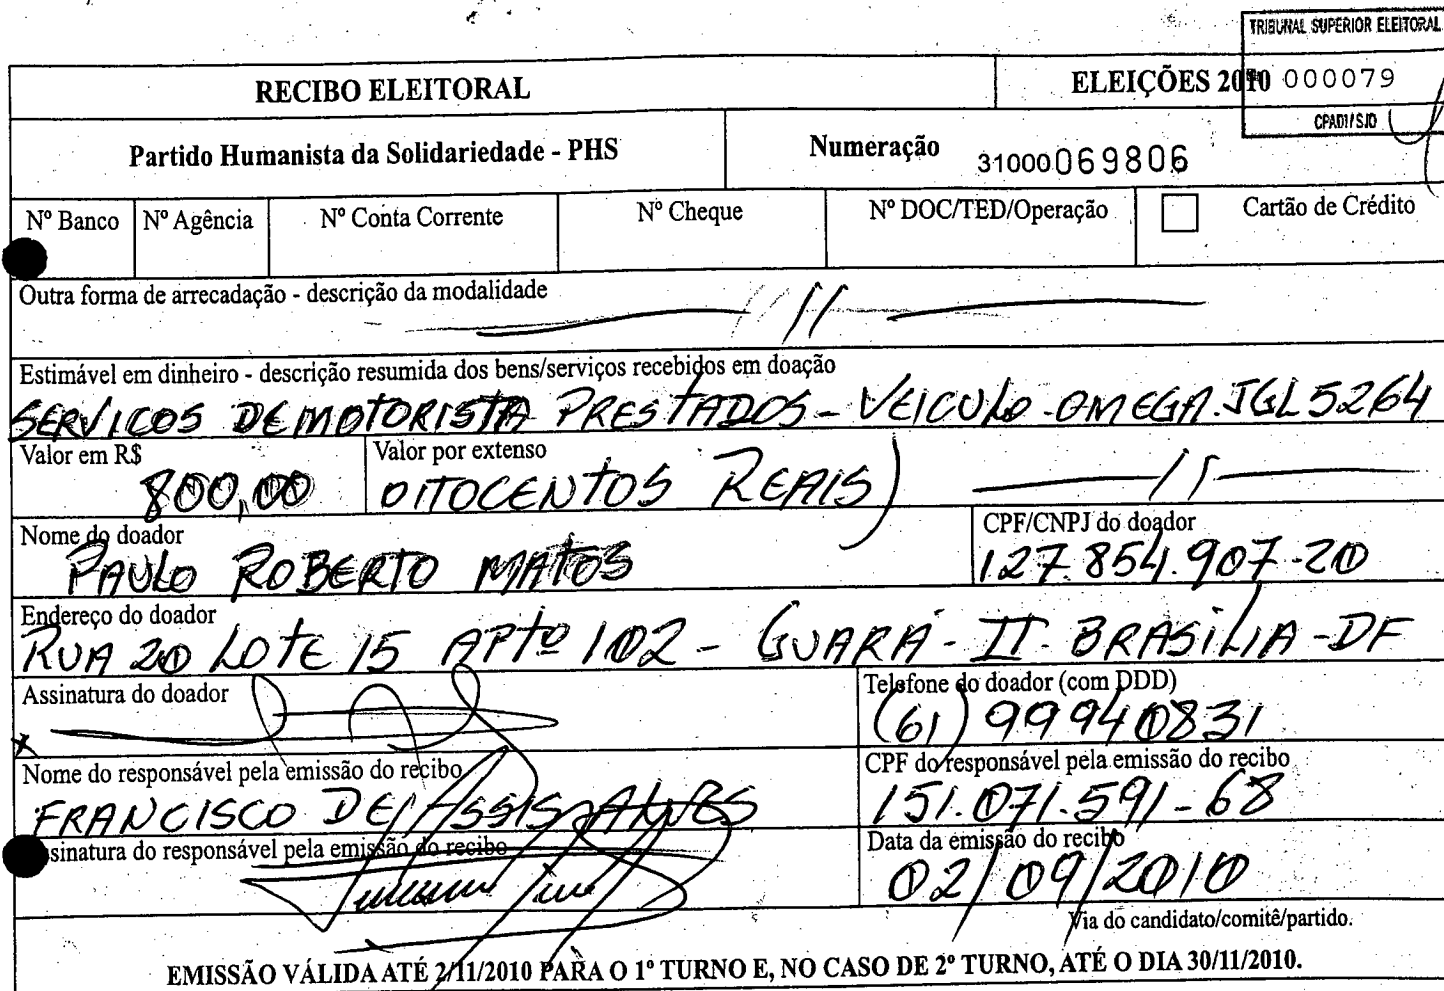 TRIBUNAL SUPERIOR ELEITORAL
RECIBO ELEITORAL
ELEIÇÕES 2010
000079
CPADI/SJD
Partido Humanista da Solidariedade - PHS
Numeração 31000069806
Nº Banco Nº Agência Nº Conta Corrente Nº Cheque Nº DOC/TED/Operação Cartão de Crédito
Outra forma de arrecadação - descrição da modalidade
Estimável em dinheiro - descrição resumida dos bens/serviços recebidos em doação
SERVICOS DE MOTORISTA PRESTADOS - VEICULO - OMEGA. JGL 5264
Valor em R$ Valor por extenso
800,00 OITOCENTOS REAIS)
Nome do doador CPF/CNPJ do doador
PAULO ROBERTO MATOS 127.854.907-20
Endereço do doador
RUA 20 LOTE 15 APTº 102 - GUARÁ - II - BRASÍLIA - DF
Assinatura do doador Telefone do doador (com DDD)
(61) 99940831
Nome do responsável pela emissão do recibo CPF do responsável pela emissão do recibo
FRANCISCO DE ASSIS ALVES 151.071.591-68
sinatura do responsável pela emissão do recibo Data da emissão do recibo
02/09/2010
Via do candidato/comitê/partido.
EMISSÃO VÁLIDA ATÉ 2/11/2010 PARA O 1º TURNO E, NO CASO DE 2º TURNO, ATÉ O DIA 30/11/2010.